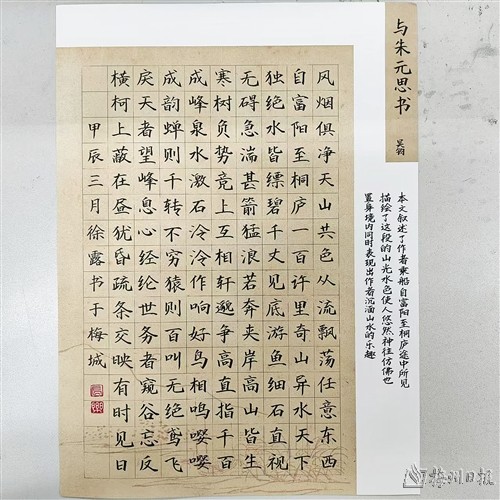 与朱元思书
吴均
本文叙述了作者乘船自富阳至桐庐途中所见
描绘了这段的山光水色使人悠然神往仿佛也
置身境内同时表现出作者沉湎山水的乐趣
风烟俱净天山共色从流飘荡任意东西
自富阳至桐庐一百许里奇山异水天下
独绝水皆缥碧千丈见底游鱼细石直视
无碍急湍甚箭猛浪若奔夹岸高山皆生
寒树负势竞上互相轩邈争高直指千百
成峰泉水激石泠泠作响好鸟相鸣嘤嘤
成韵蝉则千转不穷猿则百叫无绝鸢飞
戾天者望峰息心经纶世务者窥谷忘反
横柯上蔽在昼犹昏疏条交映有时见日
甲辰三月徐露书于梅城
梅州日报